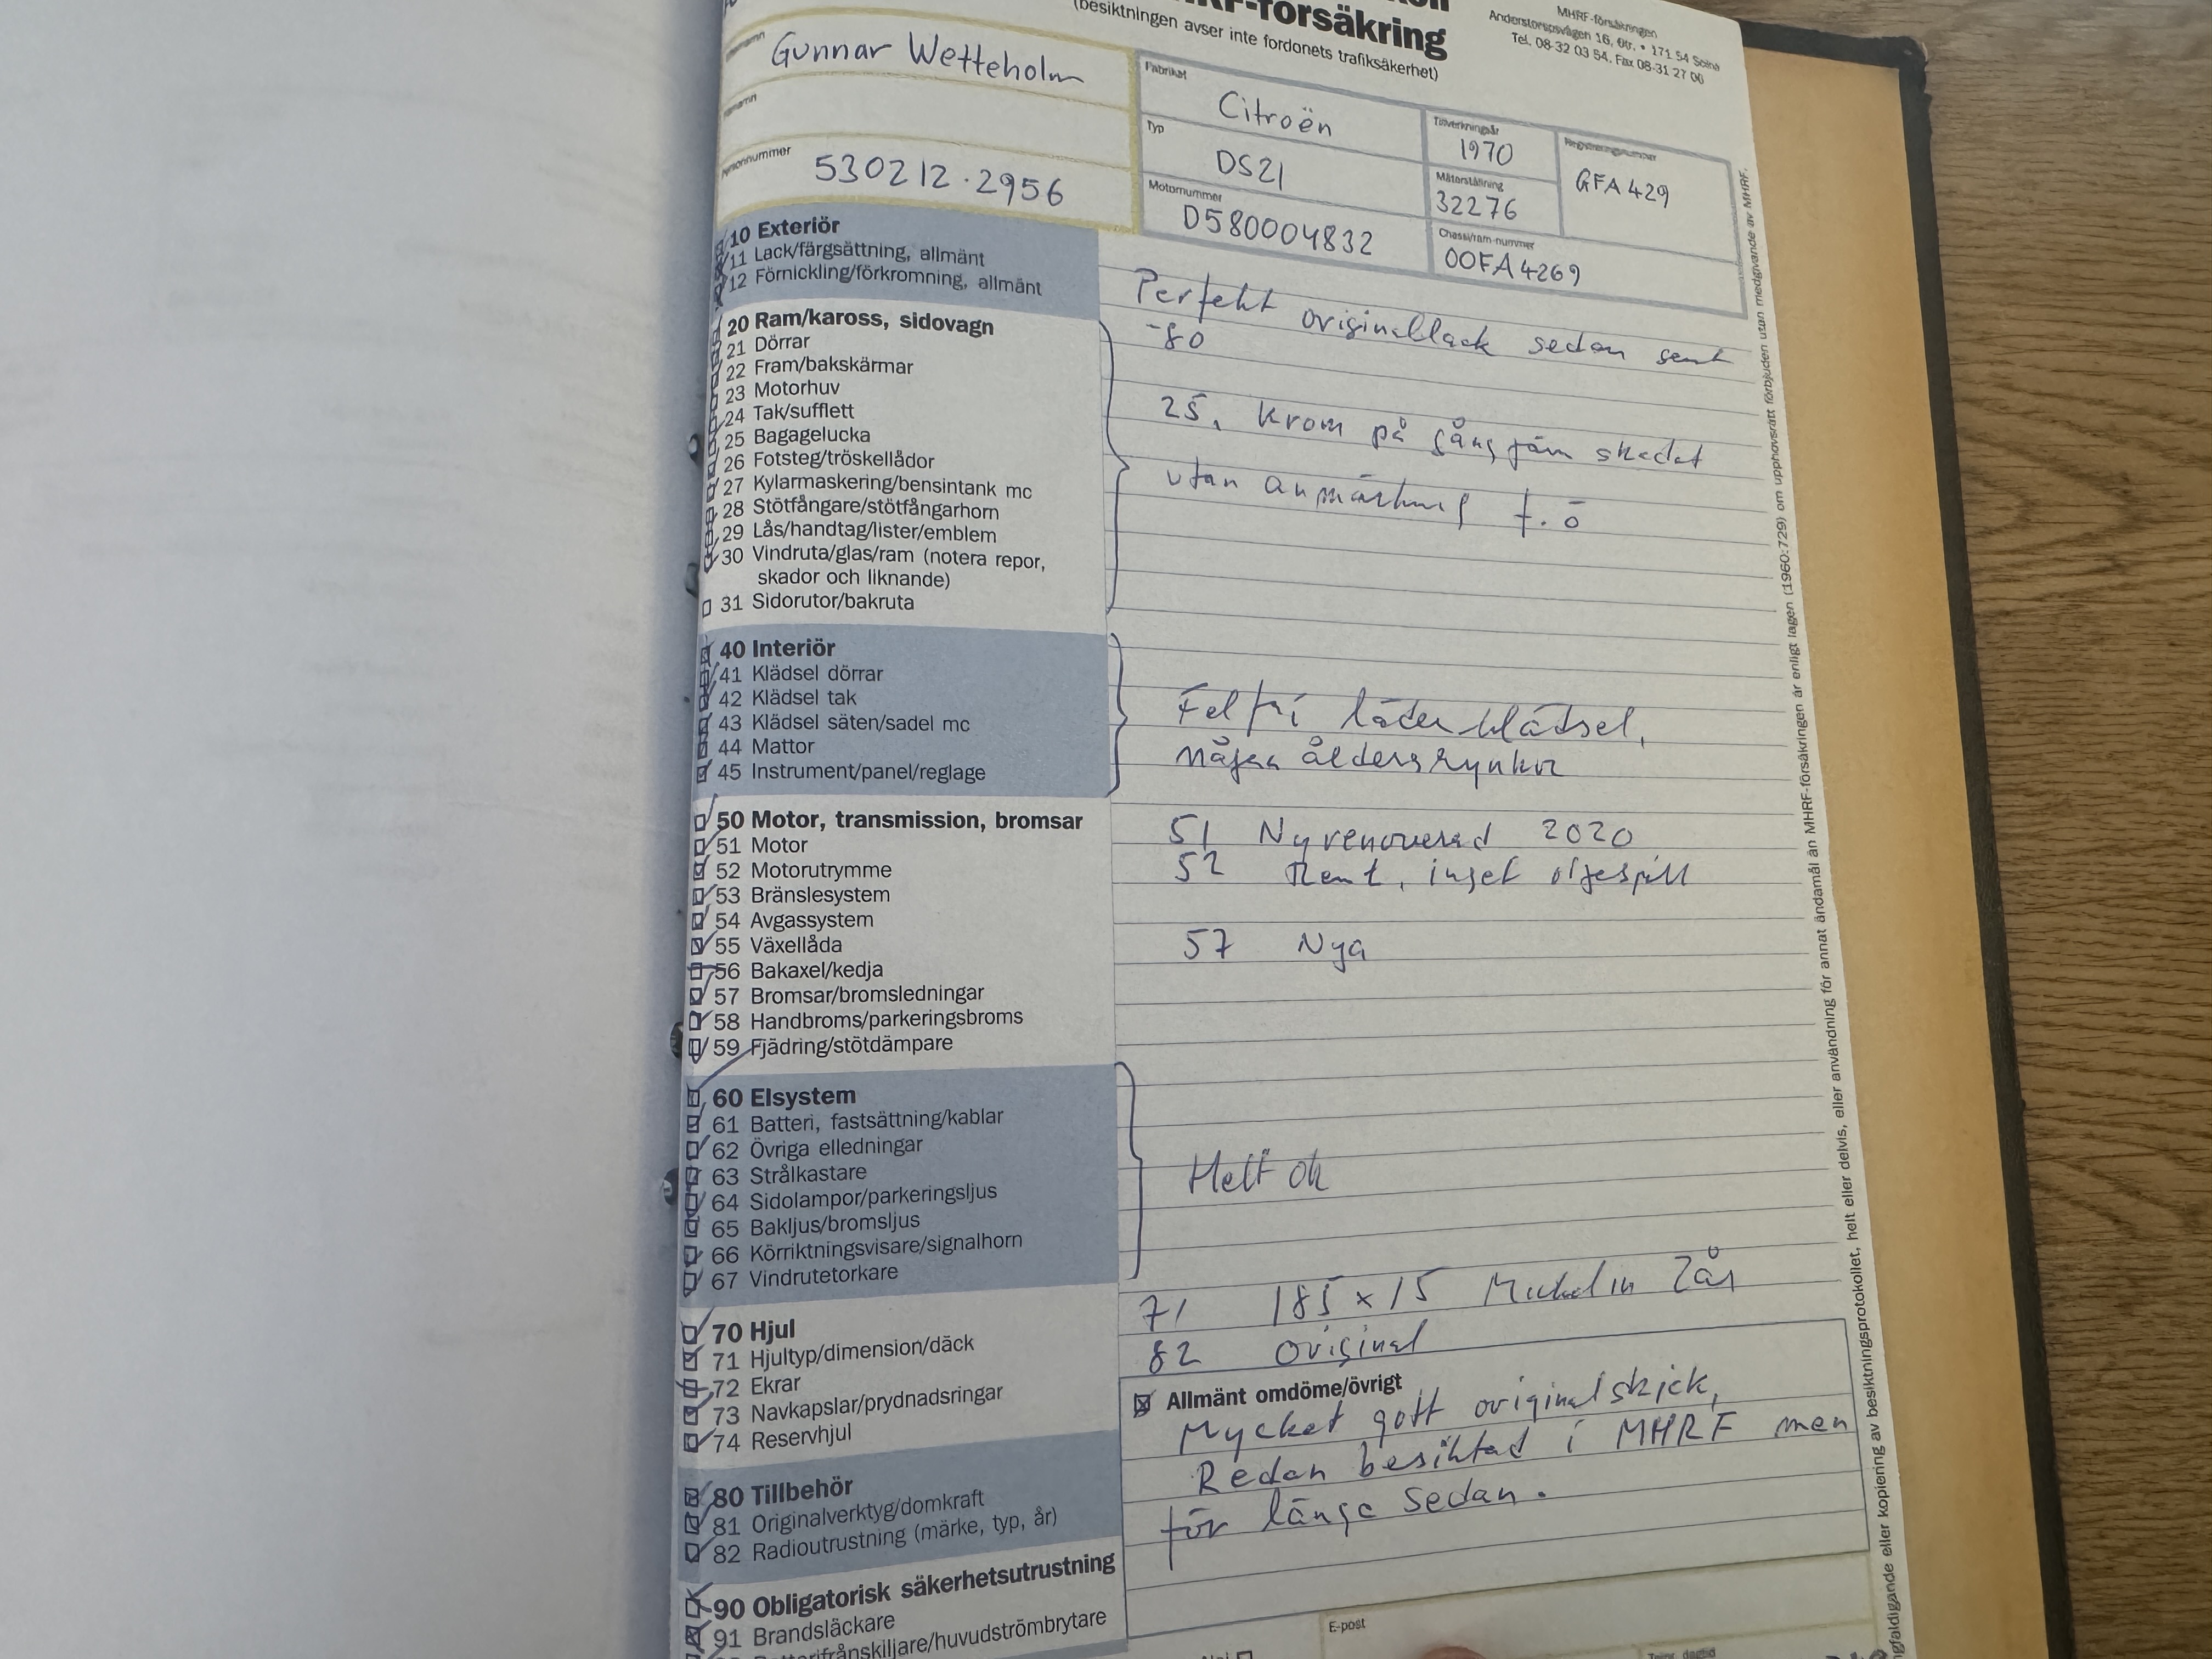 -försäkring
(besiktningen avser inte fordonets trafiksäkerhet)
MHRF-försäkringen
Anderstorpsvägen 16, 6tr. • 171 54 Solna
Tel. 08-32 03 54. Fax 08-31 27 00
Gunnar Wetteholm
Personnummer 530212-2956
Fabrikat
Citroën
Tillverkningsår
1970
Registreringsnummer
GFA 429
Typ
DS21
Mätarställning
32276
Motornummer
D580004832
Chassi/ram-nummer
00FA4269
10 Exteriör
11 Lack/färgsättning, allmänt
12 Förnickling/förkromning, allmänt
Perfekt originallack sedan sent
-80
20 Ram/kaross, sidovagn
21 Dörrar
22 Fram/bakskärmar
23 Motorhuv
24 Tak/sufflett
25 Bagagelucka
26 Fotsteg/tröskellådor
27 Kylarmaskering/bensintank mc
28 Stötfångare/stötfångarhorn
29 Lås/handtag/lister/emblem
30 Vindruta/glas/ram (notera repor,
skador och liknande)
31 Sidorutor/bakruta
25. Krom på gångjärn skadat
utan anmärkning f.ö
40 Interiör
41 Klädsel dörrar
42 Klädsel tak
43 Klädsel säten/sadel mc
44 Mattor
45 Instrument/panel/reglage
Felfri läderklädsel,
några åldersrynkor
50 Motor, transmission, bromsar
51 Motor
52 Motorutrymme
53 Bränslesystem
54 Avgassystem
55 Växellåda
56 Bakaxel/kedja
57 Bromsar/bromsledningar
58 Handbroms/parkeringsbroms
59 Fjädring/stötdämpare
51 Nyrenoverad 2020
52 Rent, inget oljespill
57 Nya
60 Elsystem
61 Batteri, fastsättning/kablar
62 Övriga elledningar
63 Strålkastare
64 Sidolampor/parkeringsljus
65 Bakljus/bromsljus
66 Körriktningsvisare/signalhorn
67 Vindrutetorkare
Helt ok
70 Hjul
71 Hjultyp/dimension/däck
72 Ekrar
73 Navkapslar/prydnadsringar
74 Reservhjul
71 185 x 15 Michelin 2år
82 Original
80 Tillbehör
81 Originalverktyg/domkraft
82 Radioutrustning (märke, typ, år)
90 Obligatorisk säkerhetsutrustning
91 Brandsläckare
Allmänt omdöme/övrigt
Mycket gott originalskick,
Redan besiktad i MHRF men
för länge sedan.
E-post
ngfaldigande eller kopiering av besiktningsprotokollet, helt eller delvis, eller användning för annat ändamål än MHRF-försäkringen är enligt lagen (1960:729) om upphovsrätt förbjuden utan medgivande av MHRF.